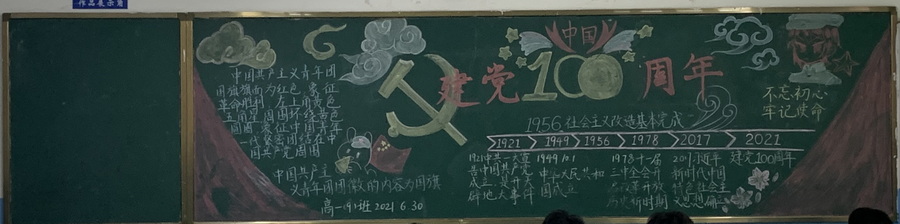 作品展示角
中国共产主义青年团
团旗旗面为红色，象征
革命胜利，左上角黄色
五角星，周围环绕黄色
圆圈，象征中国青年
一代紧密团结在中
国共产党周围
中国共产主
义青年团团徽的内容为团旗
高一(9)班 2021 6.30
中国
建党100周年
不忘初心
牢记使命
1956.社会主义改造基本完成
1921 1949 1956 1978 2017 2021
1921中共一大宣
告中国共产党
成立，是开天
辟地大事件
1949.10.1
中华人民共和
国成立
1978十一届
三中全会开
启改革开放
历史新时期
2017习近平
新时代中国
特色社会主
义思想确立
建党100周年